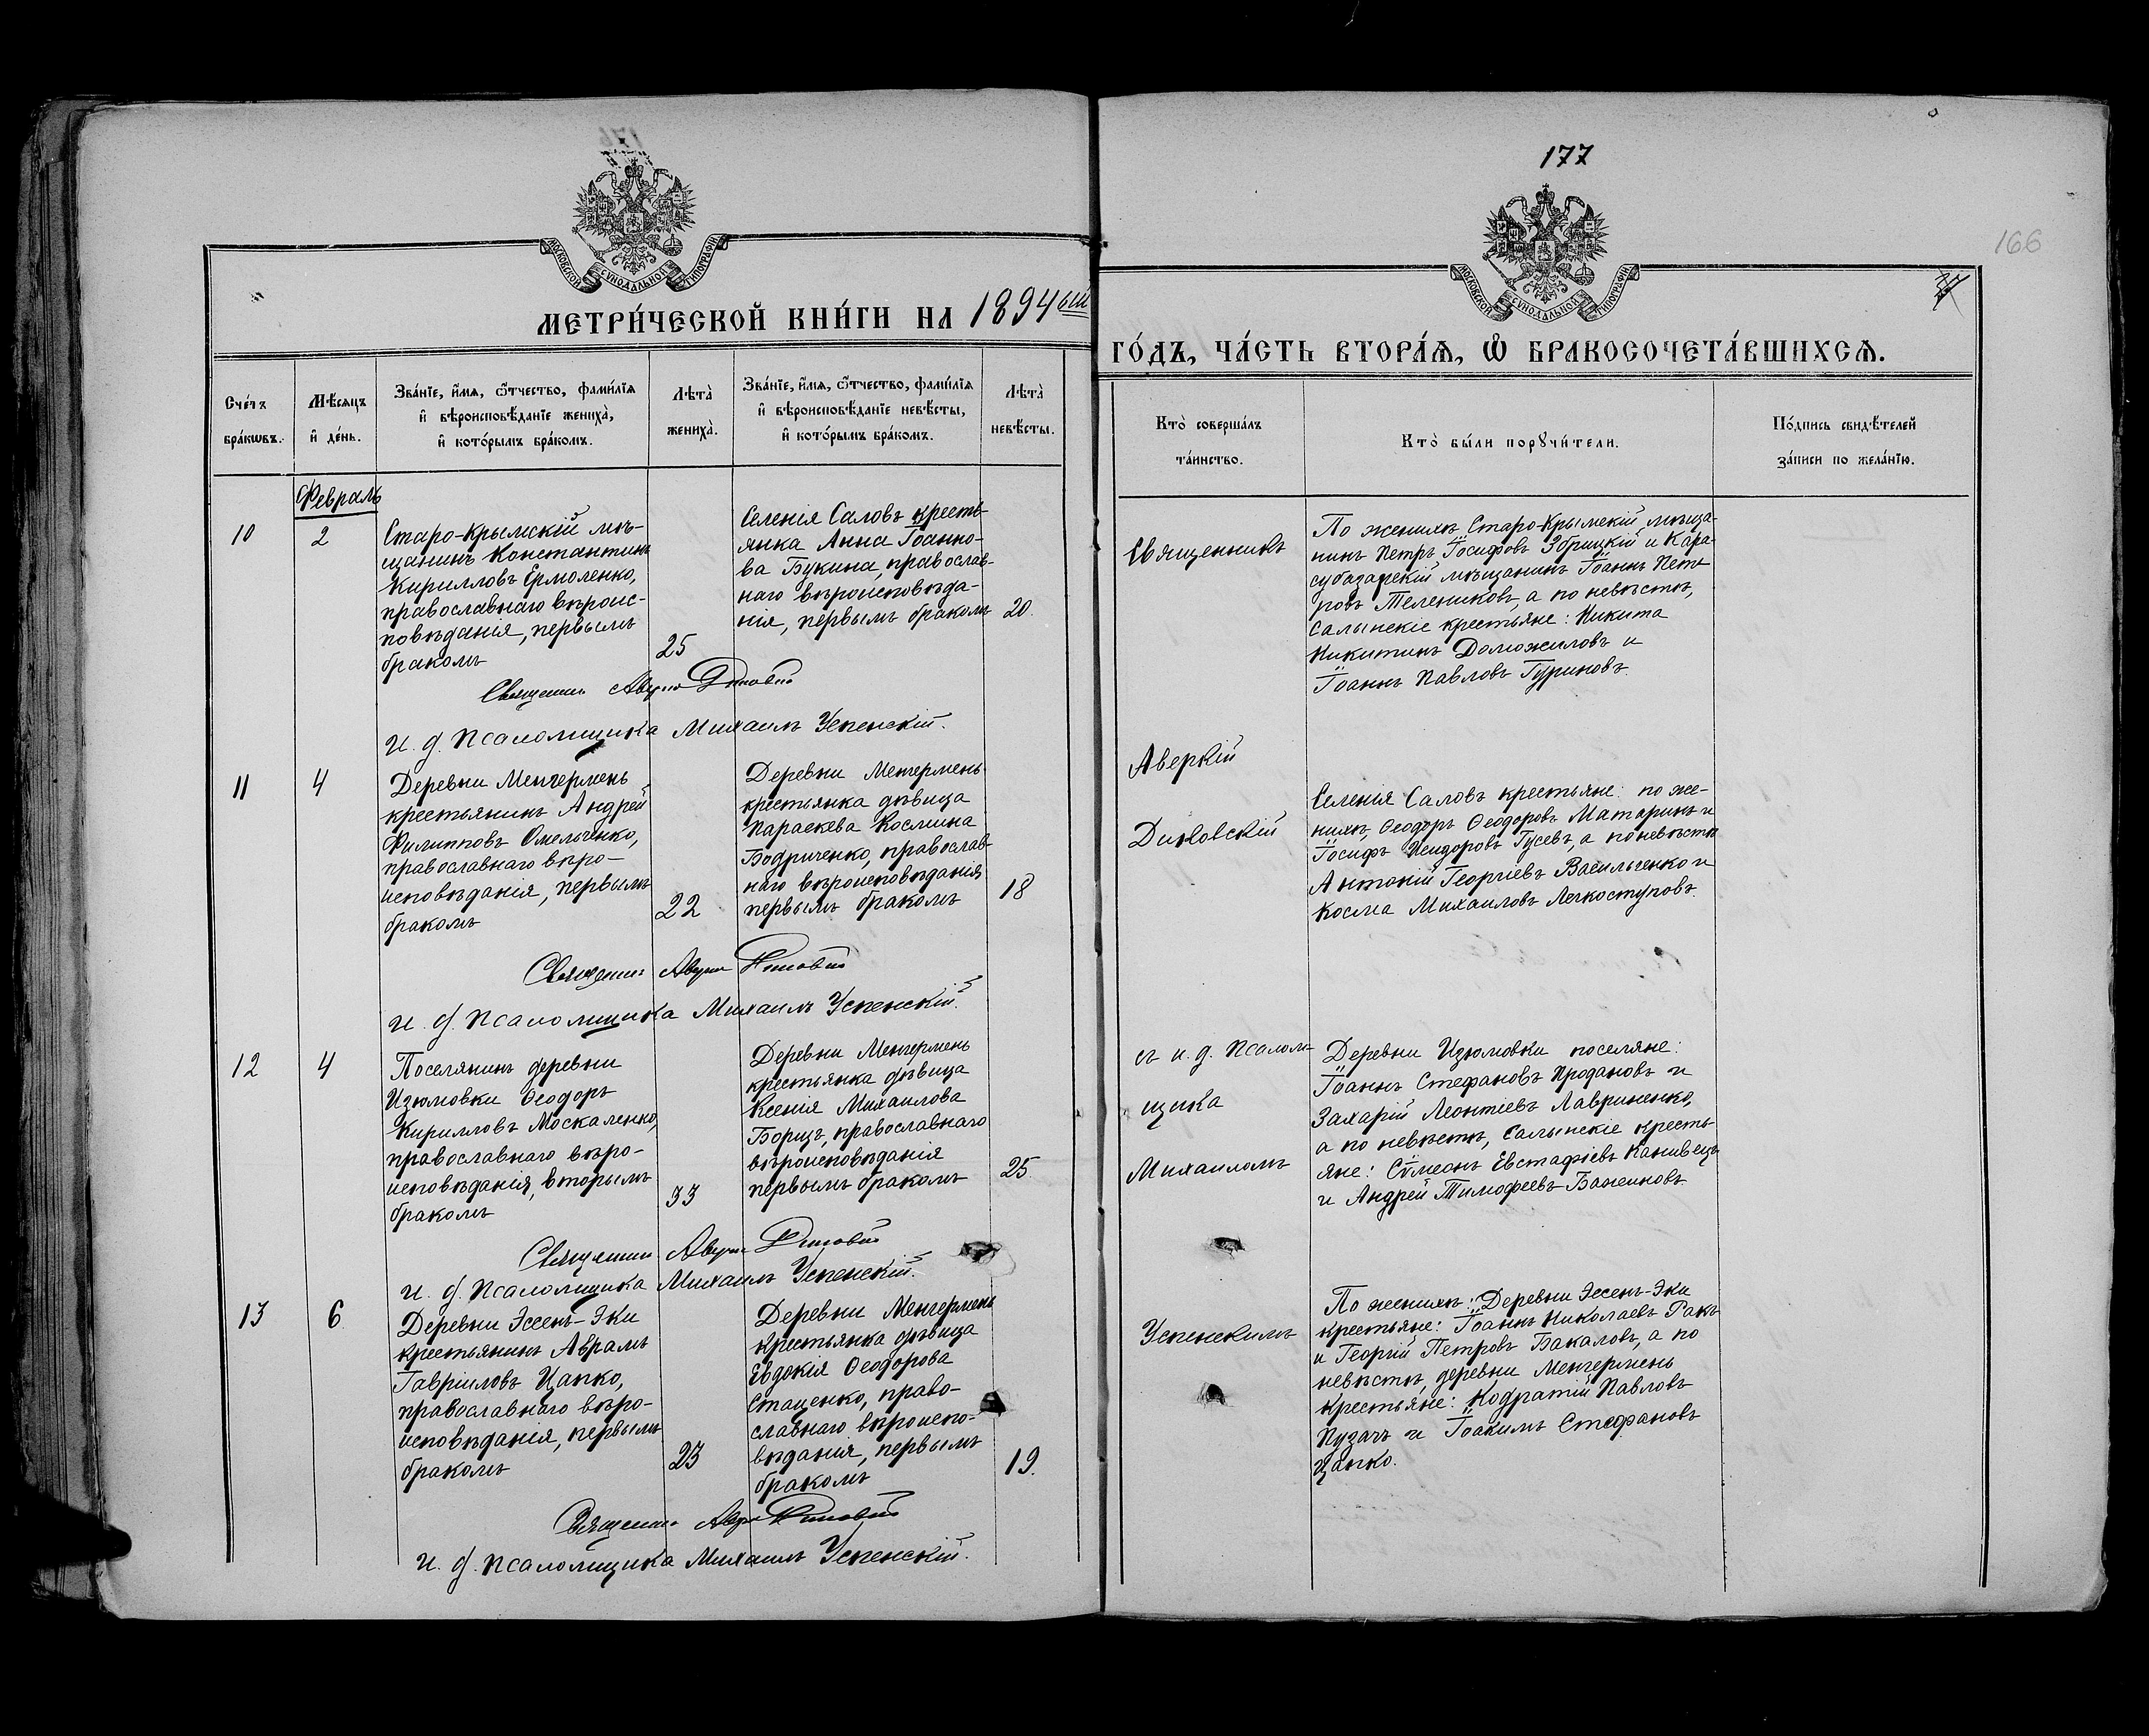 177
166
МОСКОВСКОЙ СѴНОДАЛЬНОЙ ТИПОГРАФІИ
МОСКОВСКОЙ СѴНОДАЛЬНОЙ ТИПОГРАФІИ
МЕТРИ́ЧЕСКОЙ КНИ́ГИ НА 1894ый
ГО́ДЪ, ЧА́СТЬ ВТОРА́Ѧ, Ѽ БРАКОСОЧЕТА́ВШИХСѦ.
Сче́тъ
бра́кѡвъ.
Мѣ́сяцъ
и҆ де́нь.
Зва́нїе, и҆́мѧ, ѻ҆́тчество, фами́лїѧ
и҆ вѣроисповѣ́данїе жениха̀,
и҆ кото́рымъ бра́комъ.
Лѣта̀
жениха̀.
Зва́нїе, и҆́мѧ, ѻ҆́тчество, фами́лїѧ
и҆ вѣроисповѣ́данїе невѣ́сты,
и҆ кото́рымъ бра́комъ.
Лѣта̀
невѣ́сты.
Кто̀ соверша́лъ
та́инство.
Кто̀ бы́ли порꙋчи́тели.
По́дпись свидѣ́телей
за́писи по жела́нїю.
Февраль
10
2
Старо-Крымскій мѣ-
щанинъ Константинъ
Кирилловъ Ермоленко,
православнаго вѣроис-
повѣданія, первымъ
бракомъ
25
Селенія Саловъ кресть-
янка Анна Іоанно-
ва Букина, православ-
наго вѣроисповѣда-
нія, первымъ бракомъ
20.
Священникъ
По женихѣ, Старо-Крымскій мѣща-
нинъ Петръ Іосифовъ Збрицкій и Кара-
субазарскій мѣщанинъ Іоаннъ Пет-
ровъ Телениковъ, а по невѣстѣ,
Салынскіе крестьяне: Никита
Никитинъ Доможиловъ и
Іоаннъ Павловъ Гуриновъ.
Аверкій
И. д. Псаломщика Михаилъ Успенскій.
11
4
Деревни Менгермень
крестьянинъ Андрей
Филипповъ Омельченко,
православнаго вѣро-
исповѣданія, первымъ
бракомъ
22
Деревни Менгермень
крестьянка дѣвица
Параскева Космина
Бодриченко, православ-
наго вѣроисповѣданія
первымъ бракомъ
18
Селенія Саловъ крестьяне: по же-
нихѣ, Ѳеодоръ Ѳеодоровъ Матаринъ и
Іосифъ Исидоровъ Гусевъ, а по невѣстѣ
Антоній Георгіевъ Васильченко и
Косма Михаиловъ Легкоступовъ.
И. д. Псаломщика Михаилъ Успенскій.
12
4
Поселянинъ деревни
Изюмовки Ѳеодоръ
Кирилловъ Москаленко,
православнаго вѣро-
исповѣданія, вторымъ
бракомъ
33
Деревни Менгермень
крестьянка дѣвица
Ксенія Михаилова
Борщъ, православнаго
вѣроисповѣданія
первымъ бракомъ
25.
съ и. д. Псалом-
щика
Михаиломъ
Деревни Изюмовки поселяне:
Іоаннъ Стефановъ Продановъ и
Захарій Леонтіевъ Лавриненко,
а по невѣстѣ, Салынскіе кресть-
яне: Сѵмеонъ Евстафіевъ Канивецъ
и Андрей Тимофеевъ Баженновъ.
И. д. Псаломщика Михаилъ Успенскій.
13
6
Деревни Эссенъ-Эки
крестьянинъ Аврамъ
Гавриловъ Цапко,
православнаго вѣро-
исповѣданія, первымъ
бракомъ
23
Деревни Менгермень
крестьянка дѣвица
Евдокія Ѳеодорова
Стаценко, право-
славнаго вѣроиспо-
вѣданія, первымъ
бракомъ
19.
Успенскимъ
По женихѣ: Деревни Эссенъ-Эки
крестьяне: Іоаннъ Николаевъ Ракъ
и Георгій Петровъ Бакаловъ, а по
невѣстѣ, деревни Менгермень
крестьяне: Кодратій Павловъ
Пузачъ и Іоакимъ Стефановъ
Цапко.
И. д. Псаломщика Михаилъ Успенскій.